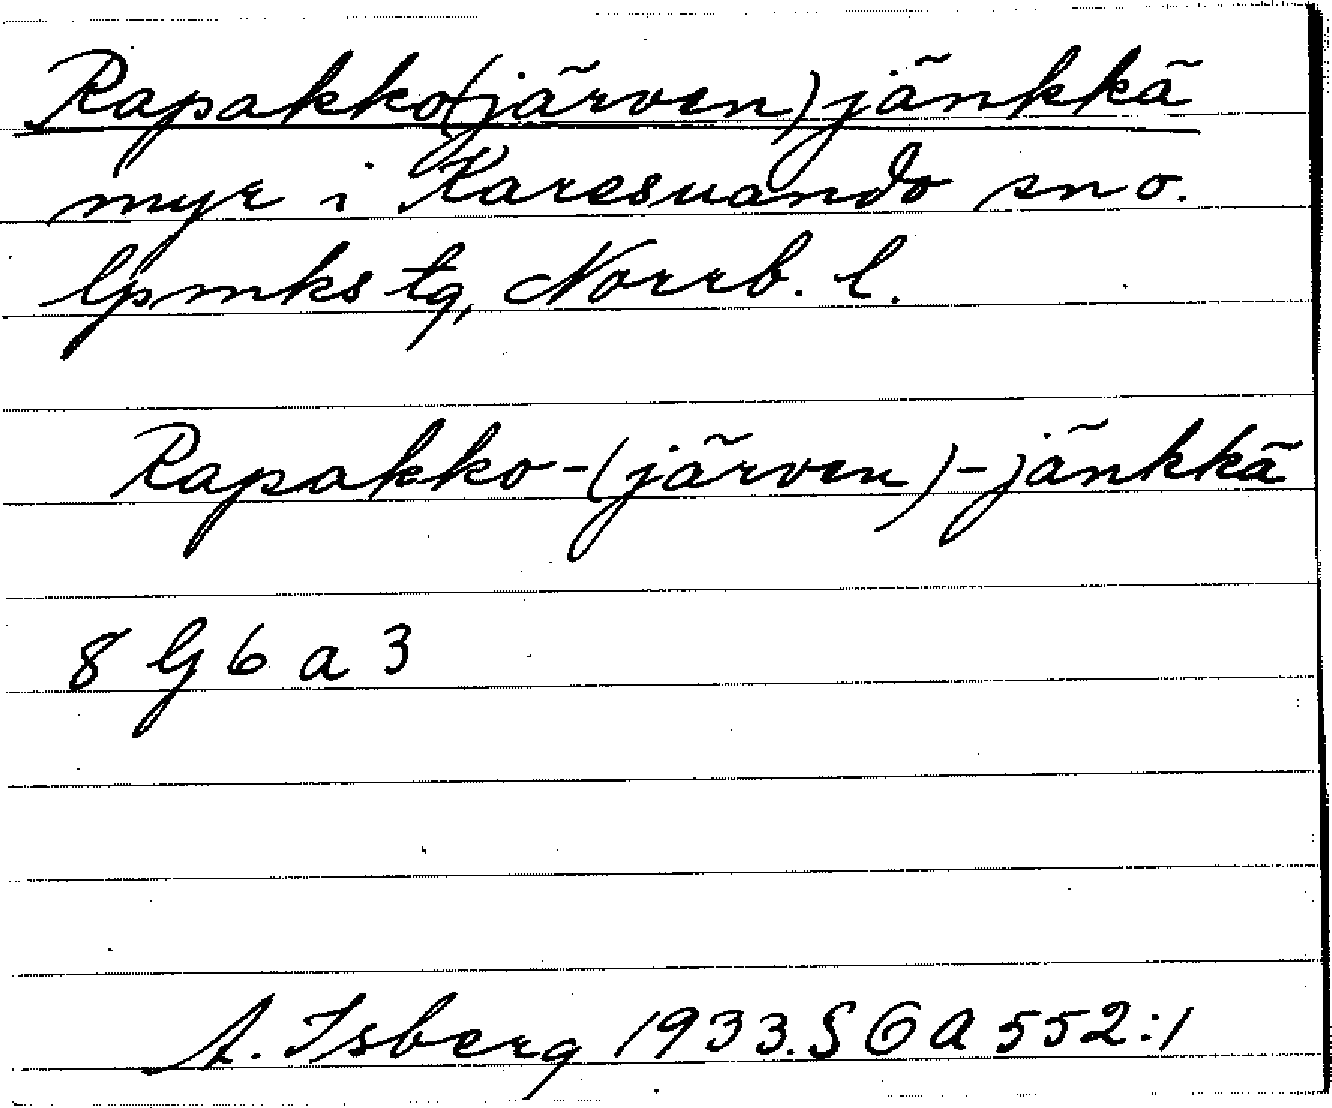 Rapakko(järven)jänkkä
myr i Karesuando sno.
lpmks tg, Norrb. l.
Rapakko-(järven)-jänkkä
8 G 6 a 3
A. Isberg 1933. SOA 552:1